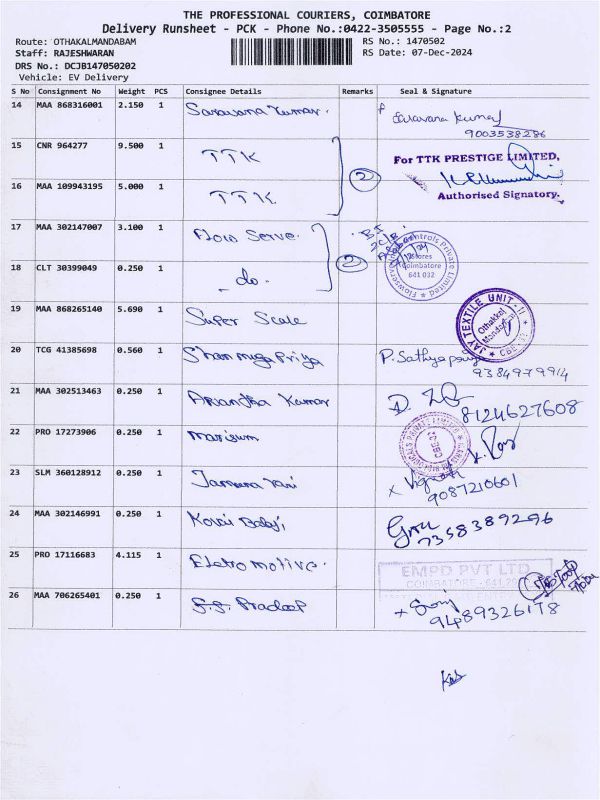 THE PROFESSIONAL COURIERS, COIMBATORE
Delivery Runsheet - PCK - Phone No.:0422-3505555 - Page No.:2
Route: OTHAKALMANDABAM RS No.: 1470502
Staff: RAJESHWARAN RS Date: 07-Dec-2024
DRS No.: DCJB147050202
Vehicle: EV Delivery
S No Consignment No Weight PCS Consignee Details Remarks Seal & Signature
14 MAA 868316001 2.150 1 Saravana Kumar. Saravana Kumar
9003538286
15 CNR 964277 9.500 1 TTK For TTK PRESTIGE LIMITED,
2
16 MAA 109943195 5.000 1 TTK Authorised Signatory.
17 MAA 302147007 3.100 1 Flow Serve.
2 Stores
Coimbatore
641 032
18 CLT 30399049 0.250 1 - do.
19 MAA 868265140 5.690 1 Super Scale JAY TEXTILE UNIT-II
Othakkal
Mandapam
20 TCG 41385698 0.560 1 Shanmuga Priya P. Sathya
9384979914
21 MAA 302513463 0.250 1 Anandha Kumar 8124627608
22 PRO 17273906 0.250 1 marism CBE-32
23 SLM 360128912 0.250 1 Jamuna rani
9087210601
24 MAA 302146991 0.250 1 Kovai Babji
7358389296
25 PRO 17116683 4.115 1 Eletro motive. EMPD PVT LTD
26 MAA 706265401 0.250 1 S.S. Pradeep
9489326178